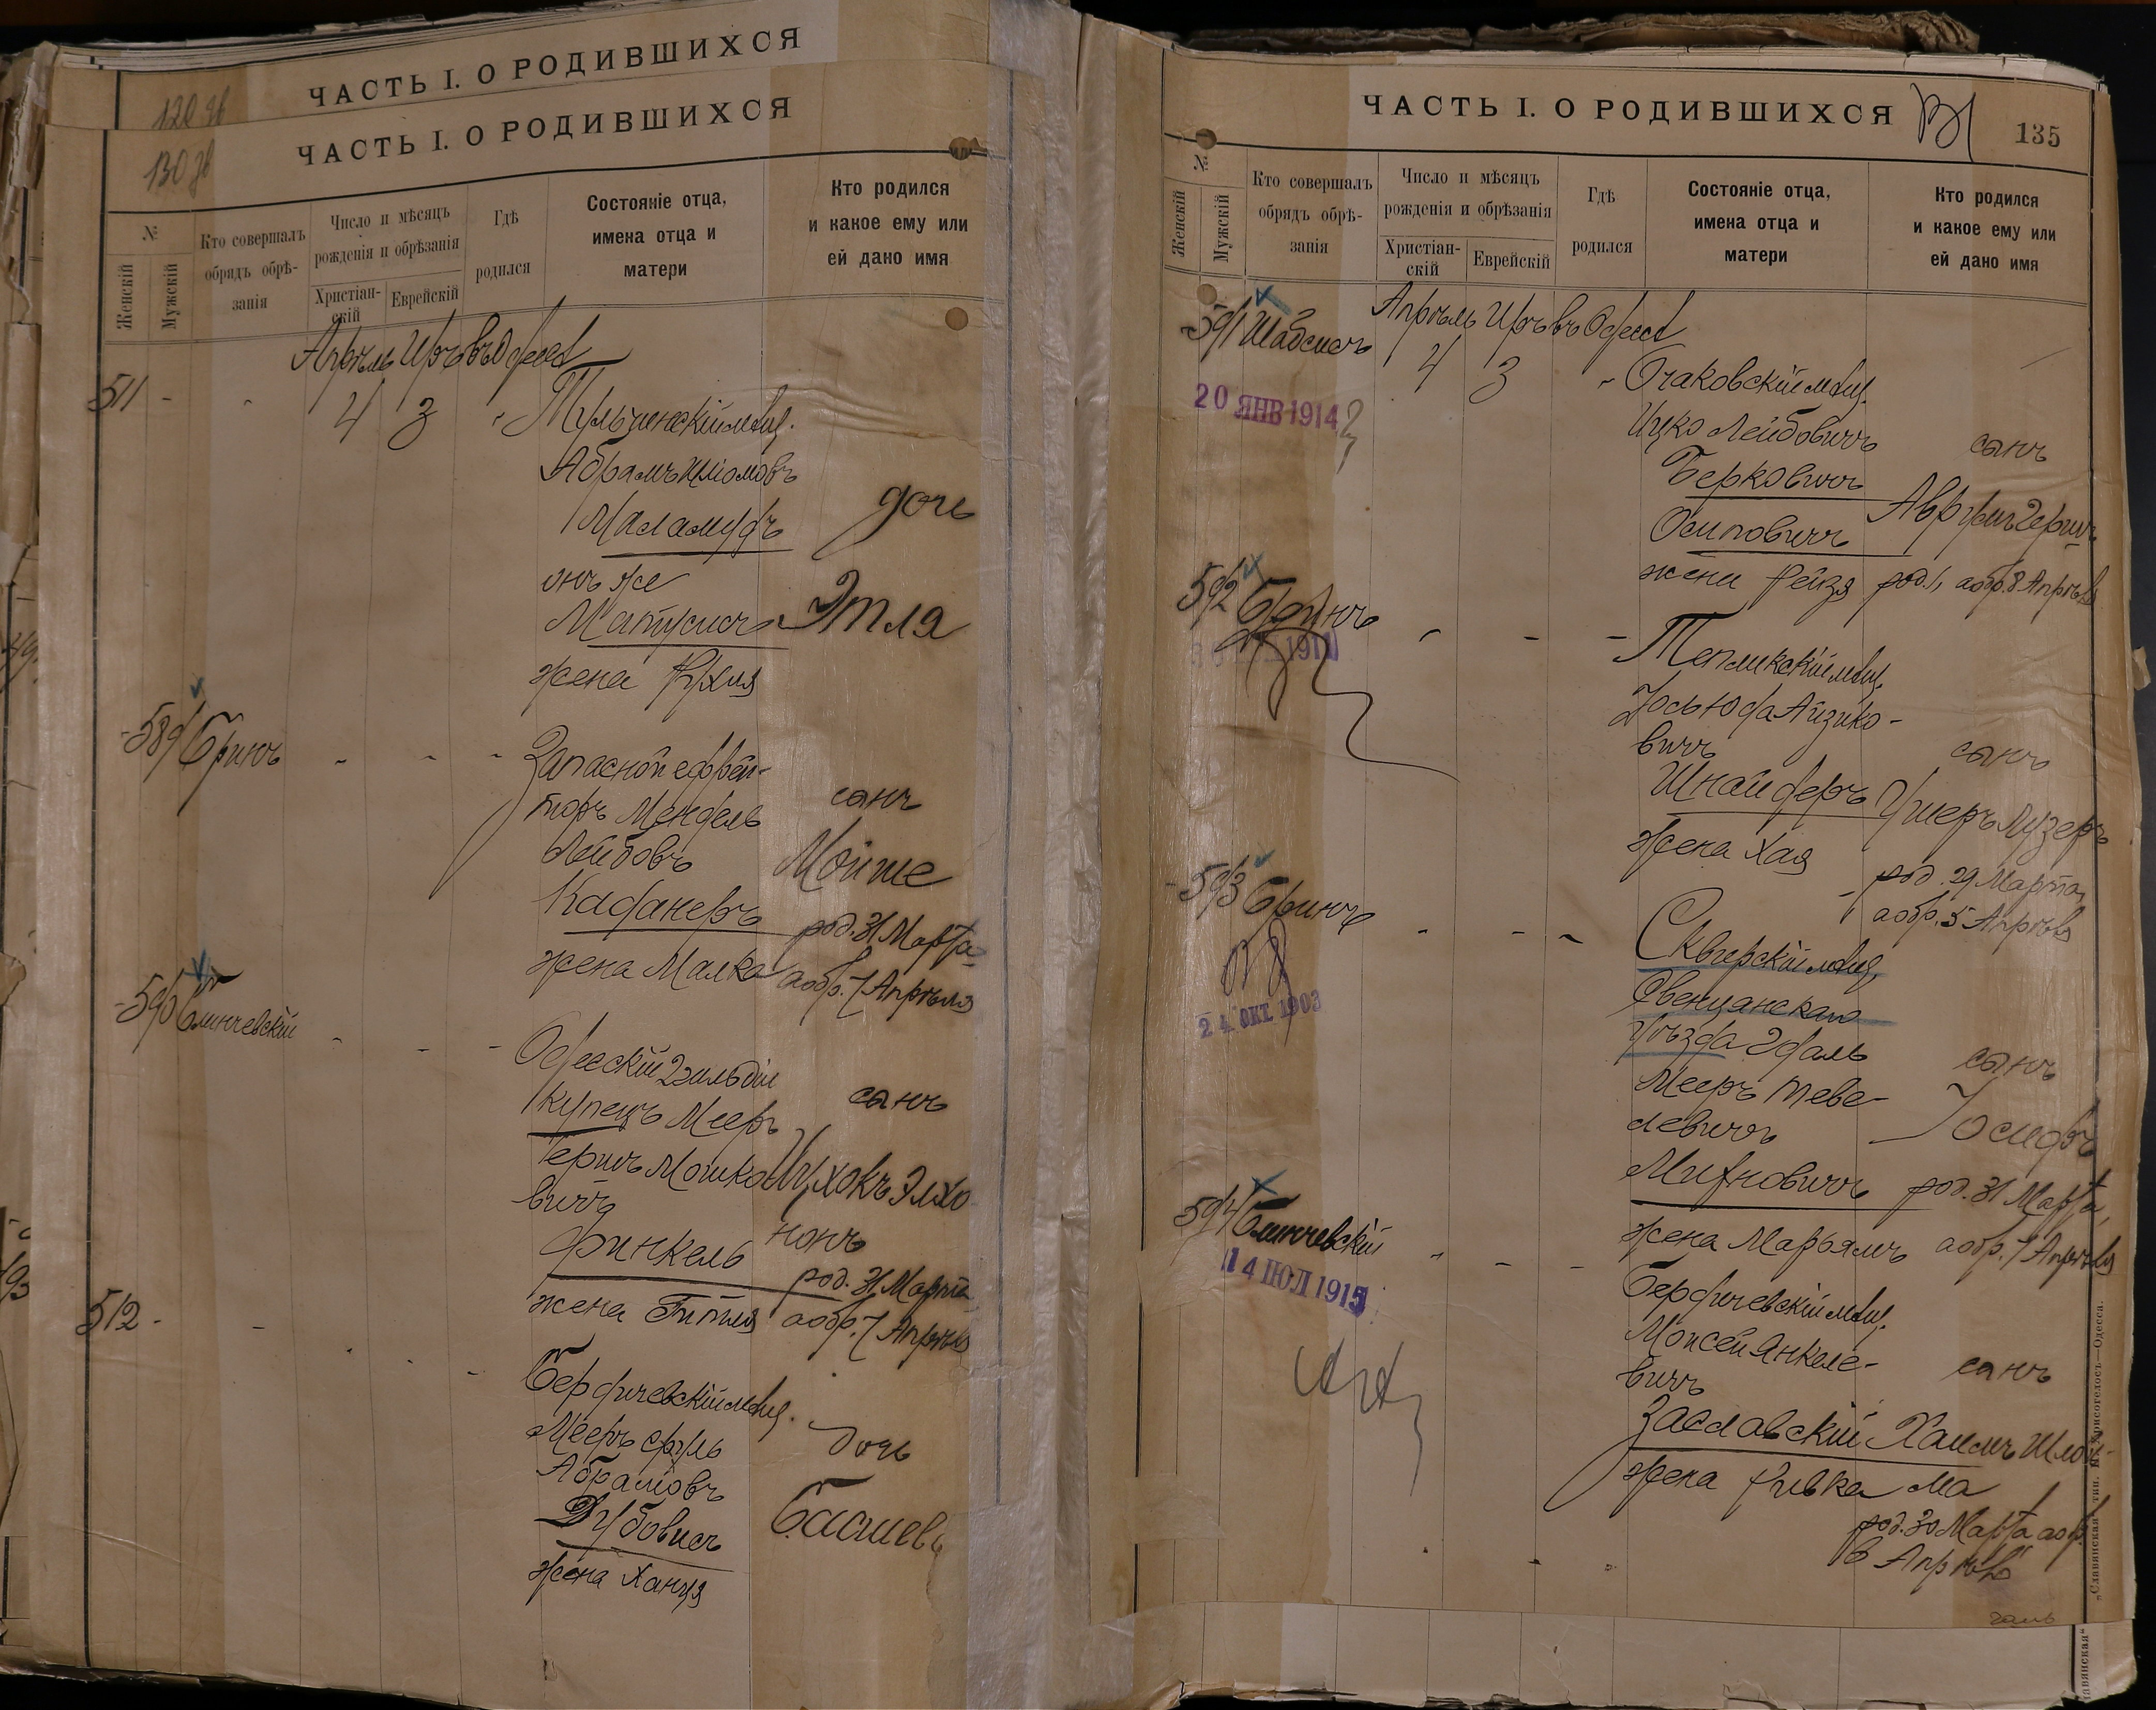 ЧАСТЬ I. О РОДИВШИХСЯ
ЧАСТЬ I. О РОДИВШИХСЯ
№
Женскій
Мужскій
Кто совершалъ
обрядъ обрѣ-
занія
Число и мѣсяцъ
рожденія и обрѣзанія
Христіан-
скій
Еврейскій
Гдѣ
родился
Состояніе отца,
имена отца и
матери
Кто родился
и какое ему или
ей дано имя
Апрѣль Іиръ въ Одессѣ
511 - - 4 3 "
Тульчинскій мѣщ.
Абрамъ Шломовъ
Маламудъ
онъ же
Матусисъ
жена
дочь
Этля
589 Бринъ
Запасной ефрей-
торъ Мендель
Лейбовъ
Кафанеръ
жена Малка
сынъ
Мойше
род. 31 Марта
а обр. 7 Апрѣля
590 Блинчевскій
Одесскій 2 гильдіи
купецъ Мееръ
Гершъ Мошко-
вичъ
Финкель
жена Гитля
сынъ
Ицхокъ Элхо
нонъ
род. 31 Марта
а обр. 7 Апрѣля
512 -
Бердичевскій мѣщ.
Мееръ Сруль
Абрамовъ
Дубовисъ
жена Ханця
дочь
Басшева
ЧАСТЬ I. О РОДИВШИХСЯ
135
№
Женскій
Мужскій
Кто совершалъ
обрядъ обрѣ-
занія
Число и мѣсяцъ
рожденія и обрѣзанія
Христіан-
скій
Еврейскій
Гдѣ
родился
Состояніе отца,
имена отца и
матери
Кто родился
и какое ему или
ей дано имя
Апрѣль Іиръ въ Одессѣ
591 Шабсисъ 4 3 "
20 ЯНВ 1914
Очаковскій мѣщ.
Ицко Лейбовичъ
Берковичъ
Осиповичъ
жена Рейзя
сынъ
Аврумъ Гершъ
род. 1, а обр. 8 Апрѣля
592 Бринъ
Тепликскій мѣщ.
Іось Юда Айзико-
вичъ
Шнайдеръ
жена Хая
сынъ
Ушеръ Лузеръ
род. 29 Марта,
а обр. 5 Апрѣля
593 Бринъ
24 ОКТ 1903
Сквирскій мѣщ.
Свенцянскаго
уѣзда Эдаль
Мееръ Теве-
левичъ
жена Марьямъ
сынъ
Іосифъ
род. 31 Марта,
а обр. 7 Апрѣля
594 Блинчевскій
14 ІЮЛ 1915
Бердичевскій мѣщ.
Моисей Янкеле-
вичъ
Заславскій
жена Ривка
сынъ
Хаимъ Шлой-
ма
род. 30 Марта а обр.
6 Апрѣля
„Славянская“ тип. Н. Хрисогелосъ—Одесса.